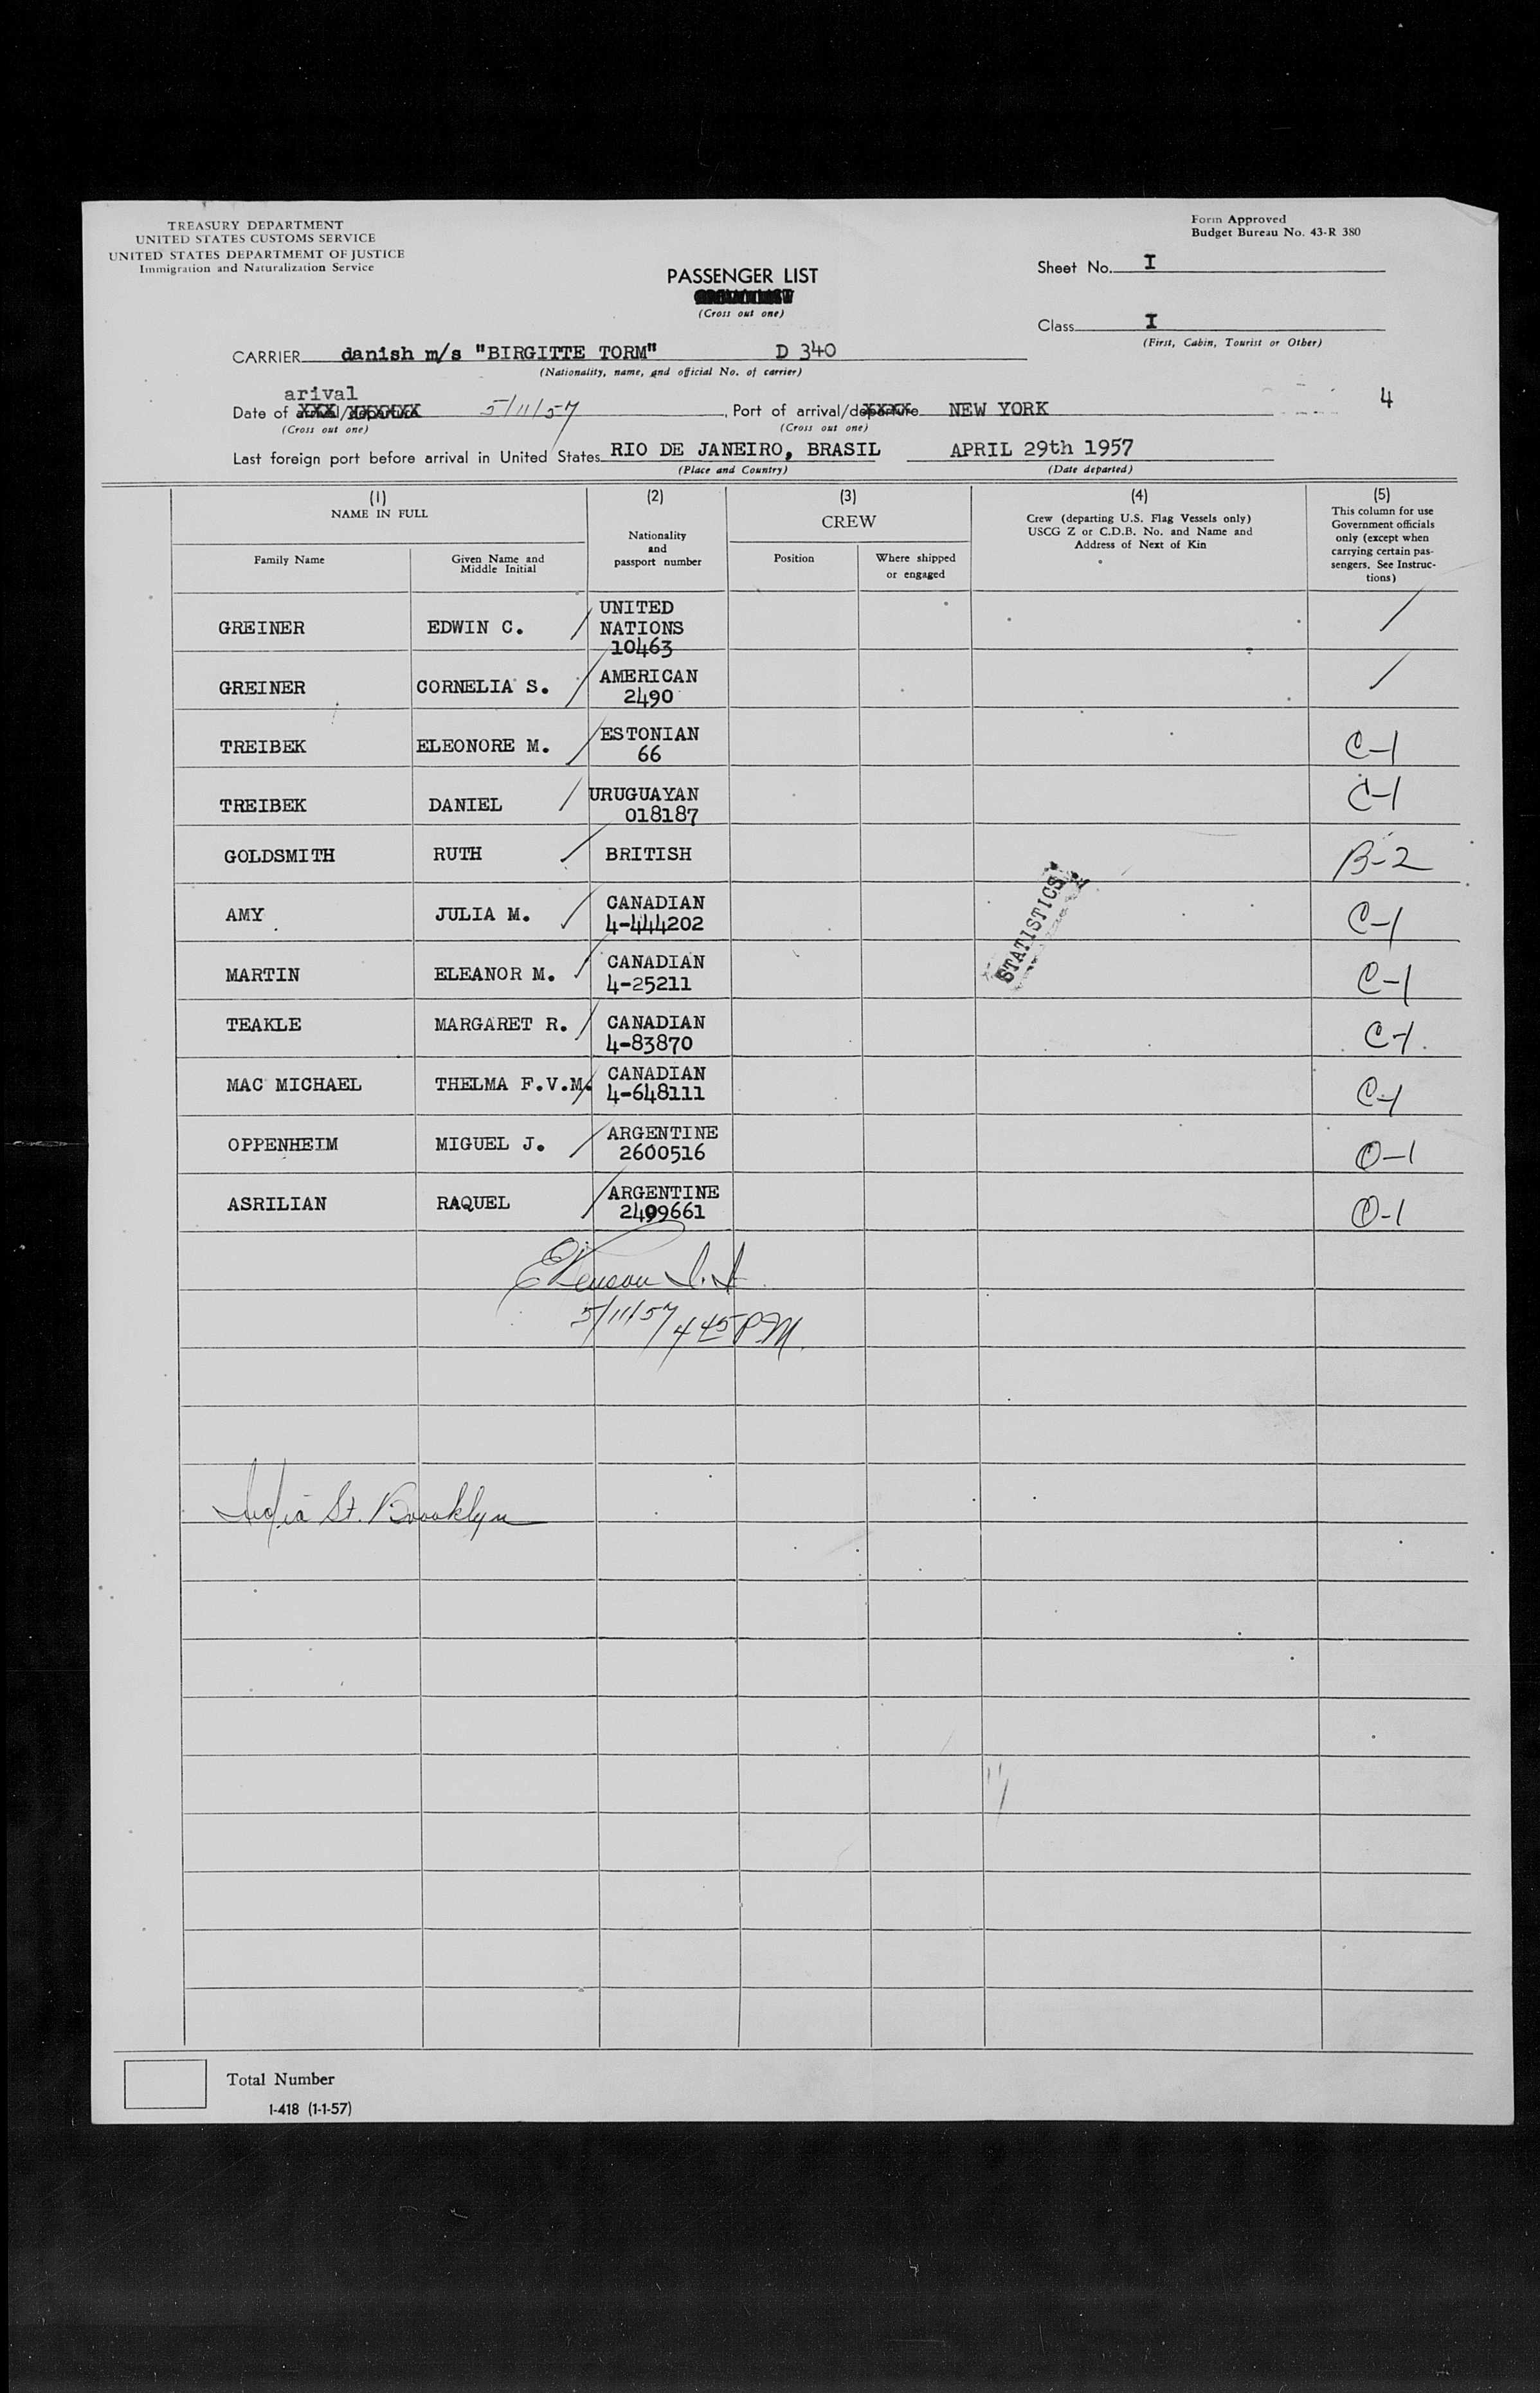 TREASURY DEPARTMENT
UNITED STATES CUSTOMS SERVICE
UNITED STATES DEPARTMEMT OF JUSTICE
Immigration and Naturalization Service
Form Approved
Budget Bureau No. 43-R 380
PASSENGER LIST
(Cross out one)
Sheet No. I
Class I
(First, Cabin, Tourist or Other)
CARRIER danish m/s "BIRGITTE TORM" D 340
(Nationality, name, and official No. of carrier)
arival
Date of arrival/departure 5/11/57, Port of arrival/departure NEW YORK 4
(Cross out one) (Cross out one)
Last foreign port before arrival in United States RIO DE JANEIRO, BRASIL APRIL 29th 1957
(Place and Country) (Date departed)
(1) NAME IN FULL
Family Name
Given Name and Middle Initial
(2) Nationality and passport number
(3) CREW
Position
Where shipped or engaged
(4) Crew (departing U.S. Flag Vessels only) USCG Z or C.D.B. No. and Name and Address of Next of Kin
(5) This column for use Government officials only (except when carrying certain pas-sengers. See Instruc-tions)
GREINER EDWIN C. / UNITED NATIONS 10463 /
GREINER CORNELIA S. / AMERICAN 2490 /
TREIBEK ELEONORE M. / ESTONIAN 66 C-1
TREIBEK DANIEL / URUGUAYAN 018187 C-1
GOLDSMITH RUTH / BRITISH B-2
AMY JULIA M. / CANADIAN 4-444202 C-1
MARTIN ELEANOR M. / CANADIAN 4-25211 C-1
TEAKLE MARGARET R. / CANADIAN 4-83870 C-1
MAC MICHAEL THELMA F.V.M. / CANADIAN 4-648111 C-1
OPPENHEIM MIGUEL J. / ARGENTINE 2600516 O-1
ASRILIAN RAQUEL / ARGENTINE 2499661 O-1
STATISTICS
5/11/57 445 PM
India St. Brooklyn
11/
Total Number
I-418 (1-1-57)